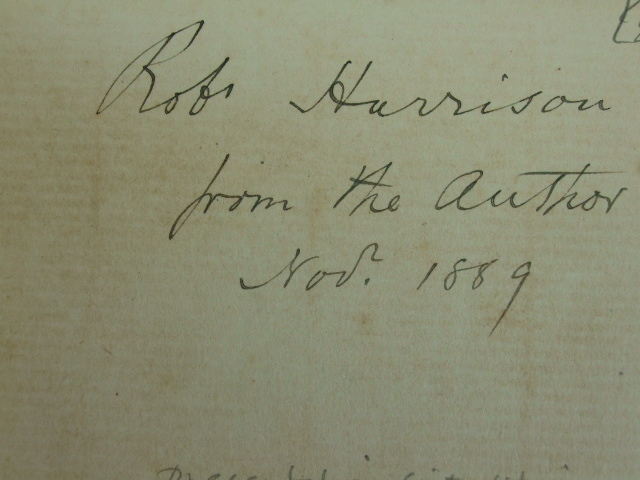 Robt Harrison
from the Author
Novr. 1889